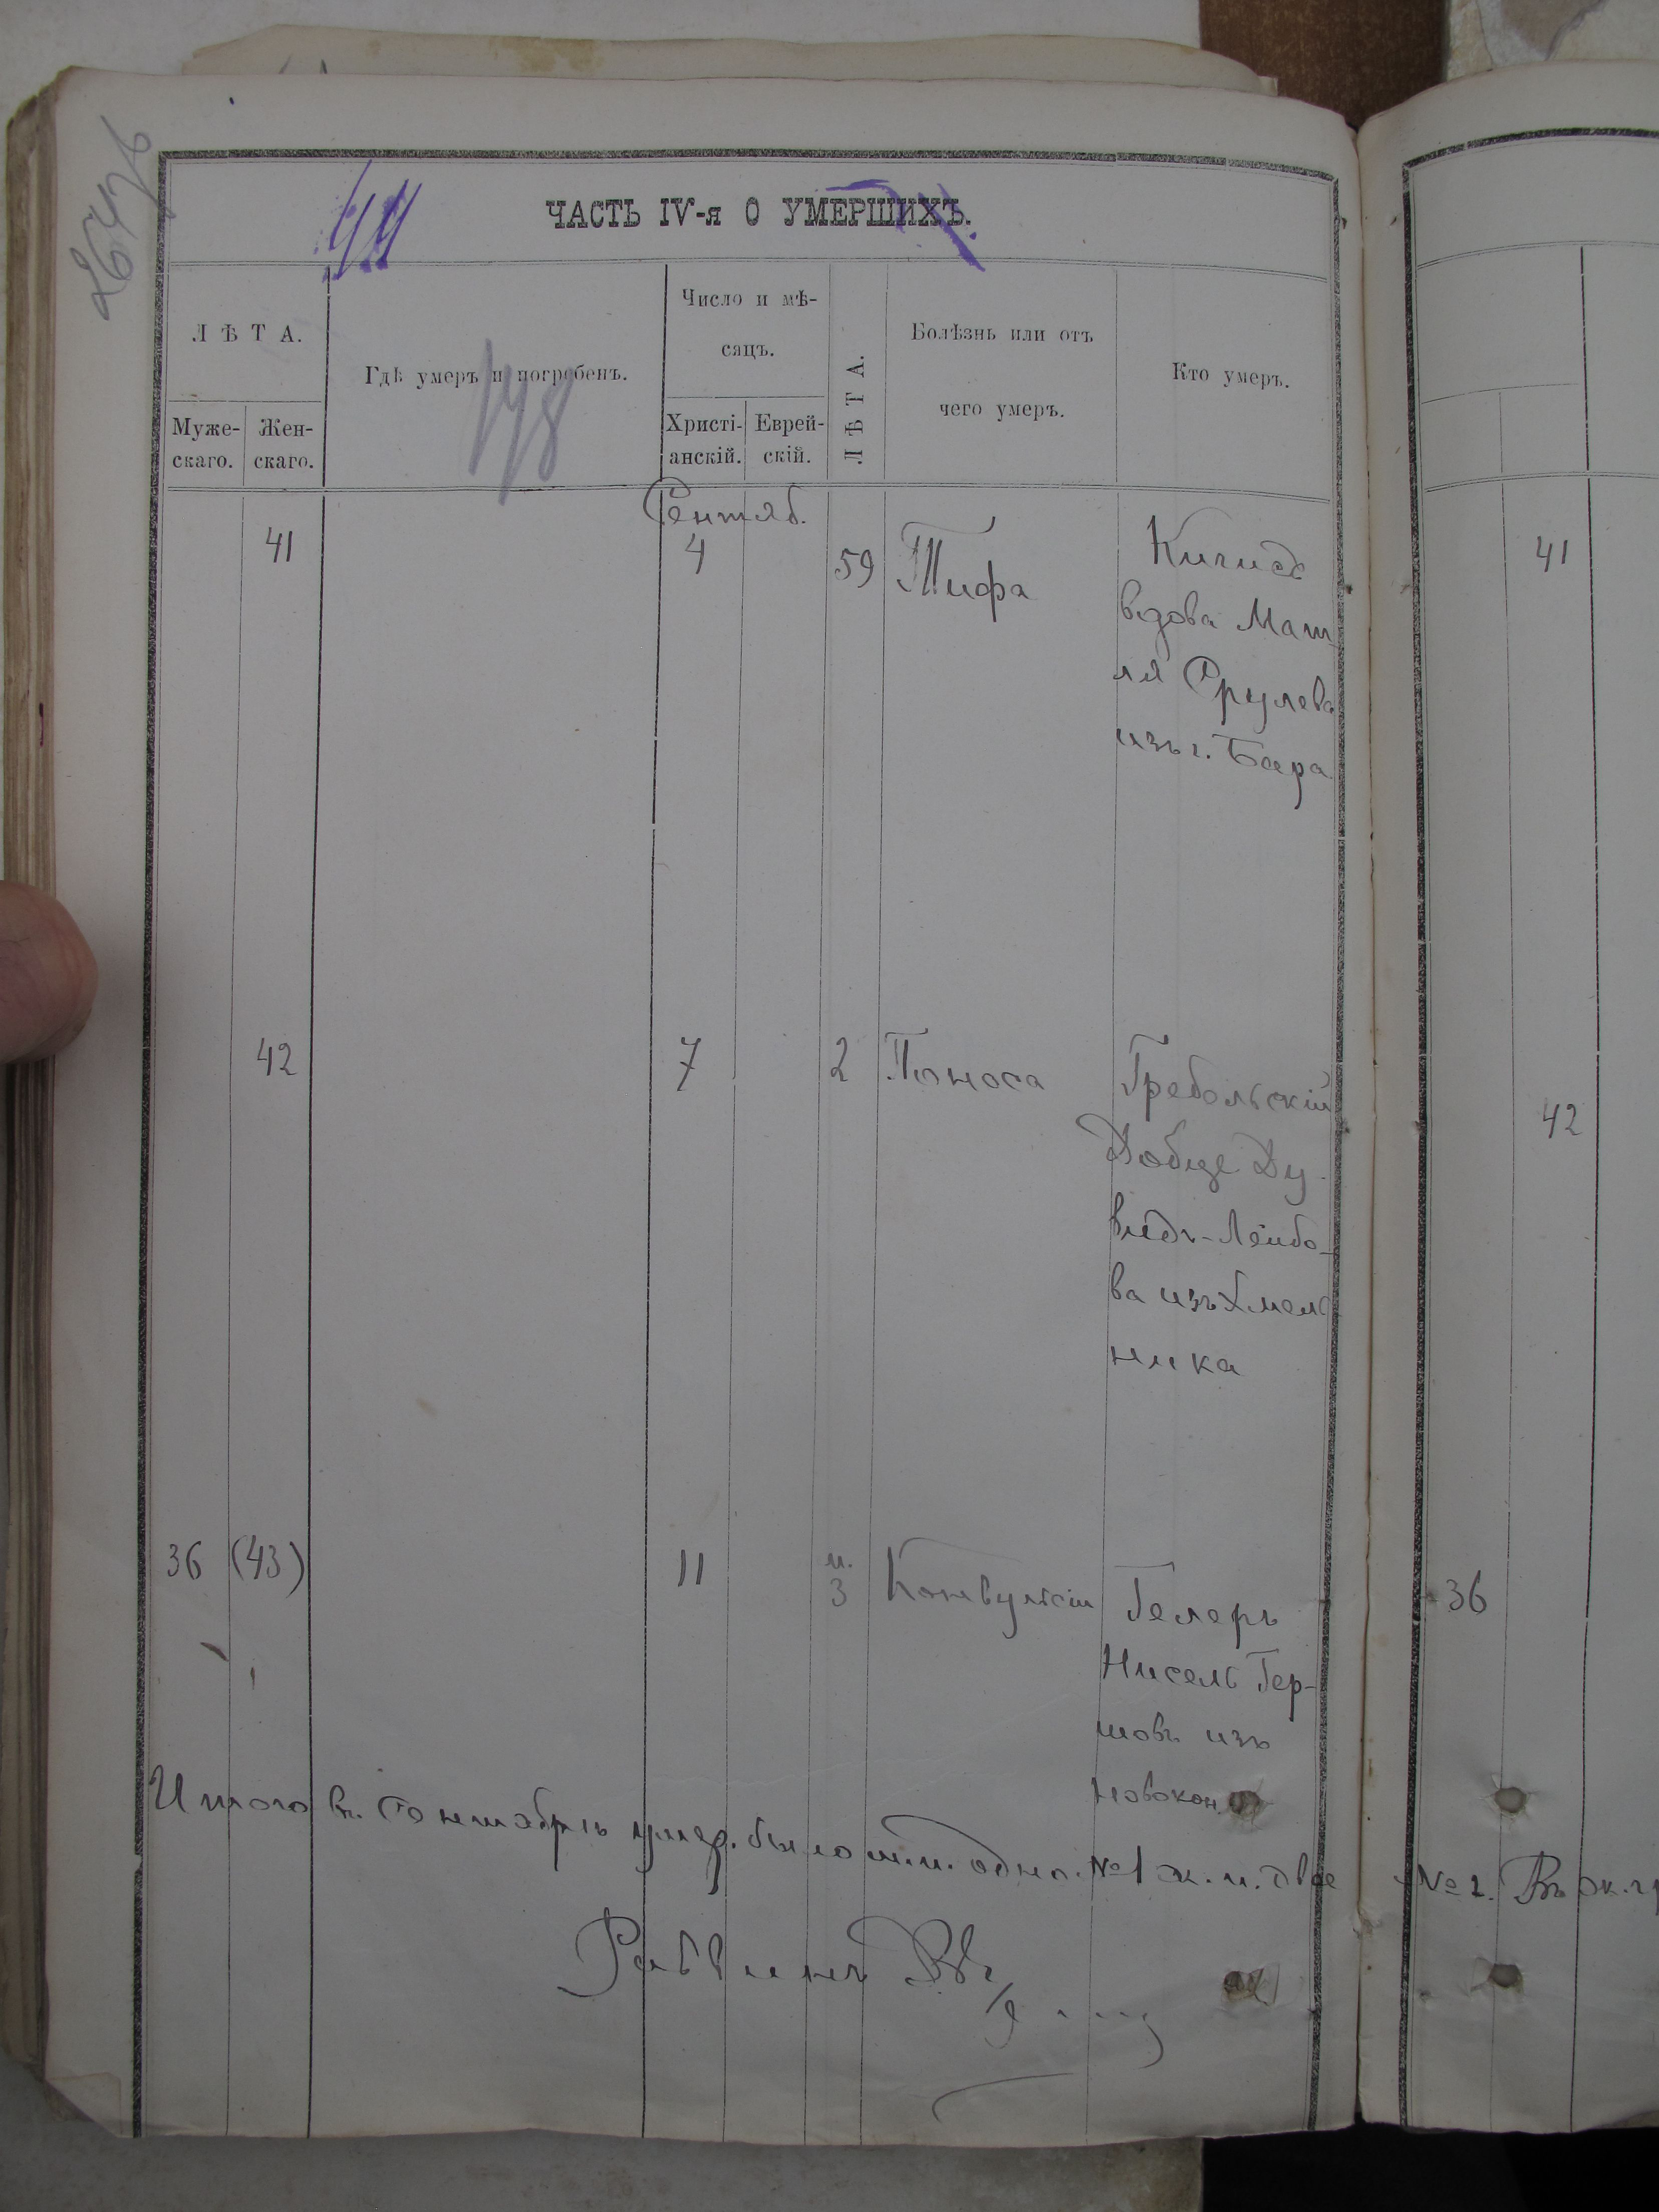 264 об
44
ЧАСТЬ IV-я О УМЕРШИХЪ.
ЛѢТА.
Мужескаго.
Женскаго.
Гдѣ умеръ и погребенъ.
178
Число и мѣ-
сяцъ.
Христі-
анскій.
Еврей-
скій.
ЛѢТА.
Болѣзнь или отъ
чего умеръ.
Кто умеръ.
Сентяб.
41 4 59 Тифа
вдова Мат
ля Срулева
изъ г. Бара
42 7 2 Поноса Гребольскій
Добце Ду-
видъ-Лейбо-
ва изъ Хмель
ника
36 (43) 11 м. 3 Конвульсіи Гелеръ
Нисель Гер-
шовъ изъ
Новокон.
Итого въ Сентябрь умер. было м.п. одно. №1 ж.п. двое
Раввинъ
41
42
36
№ 2. Въ